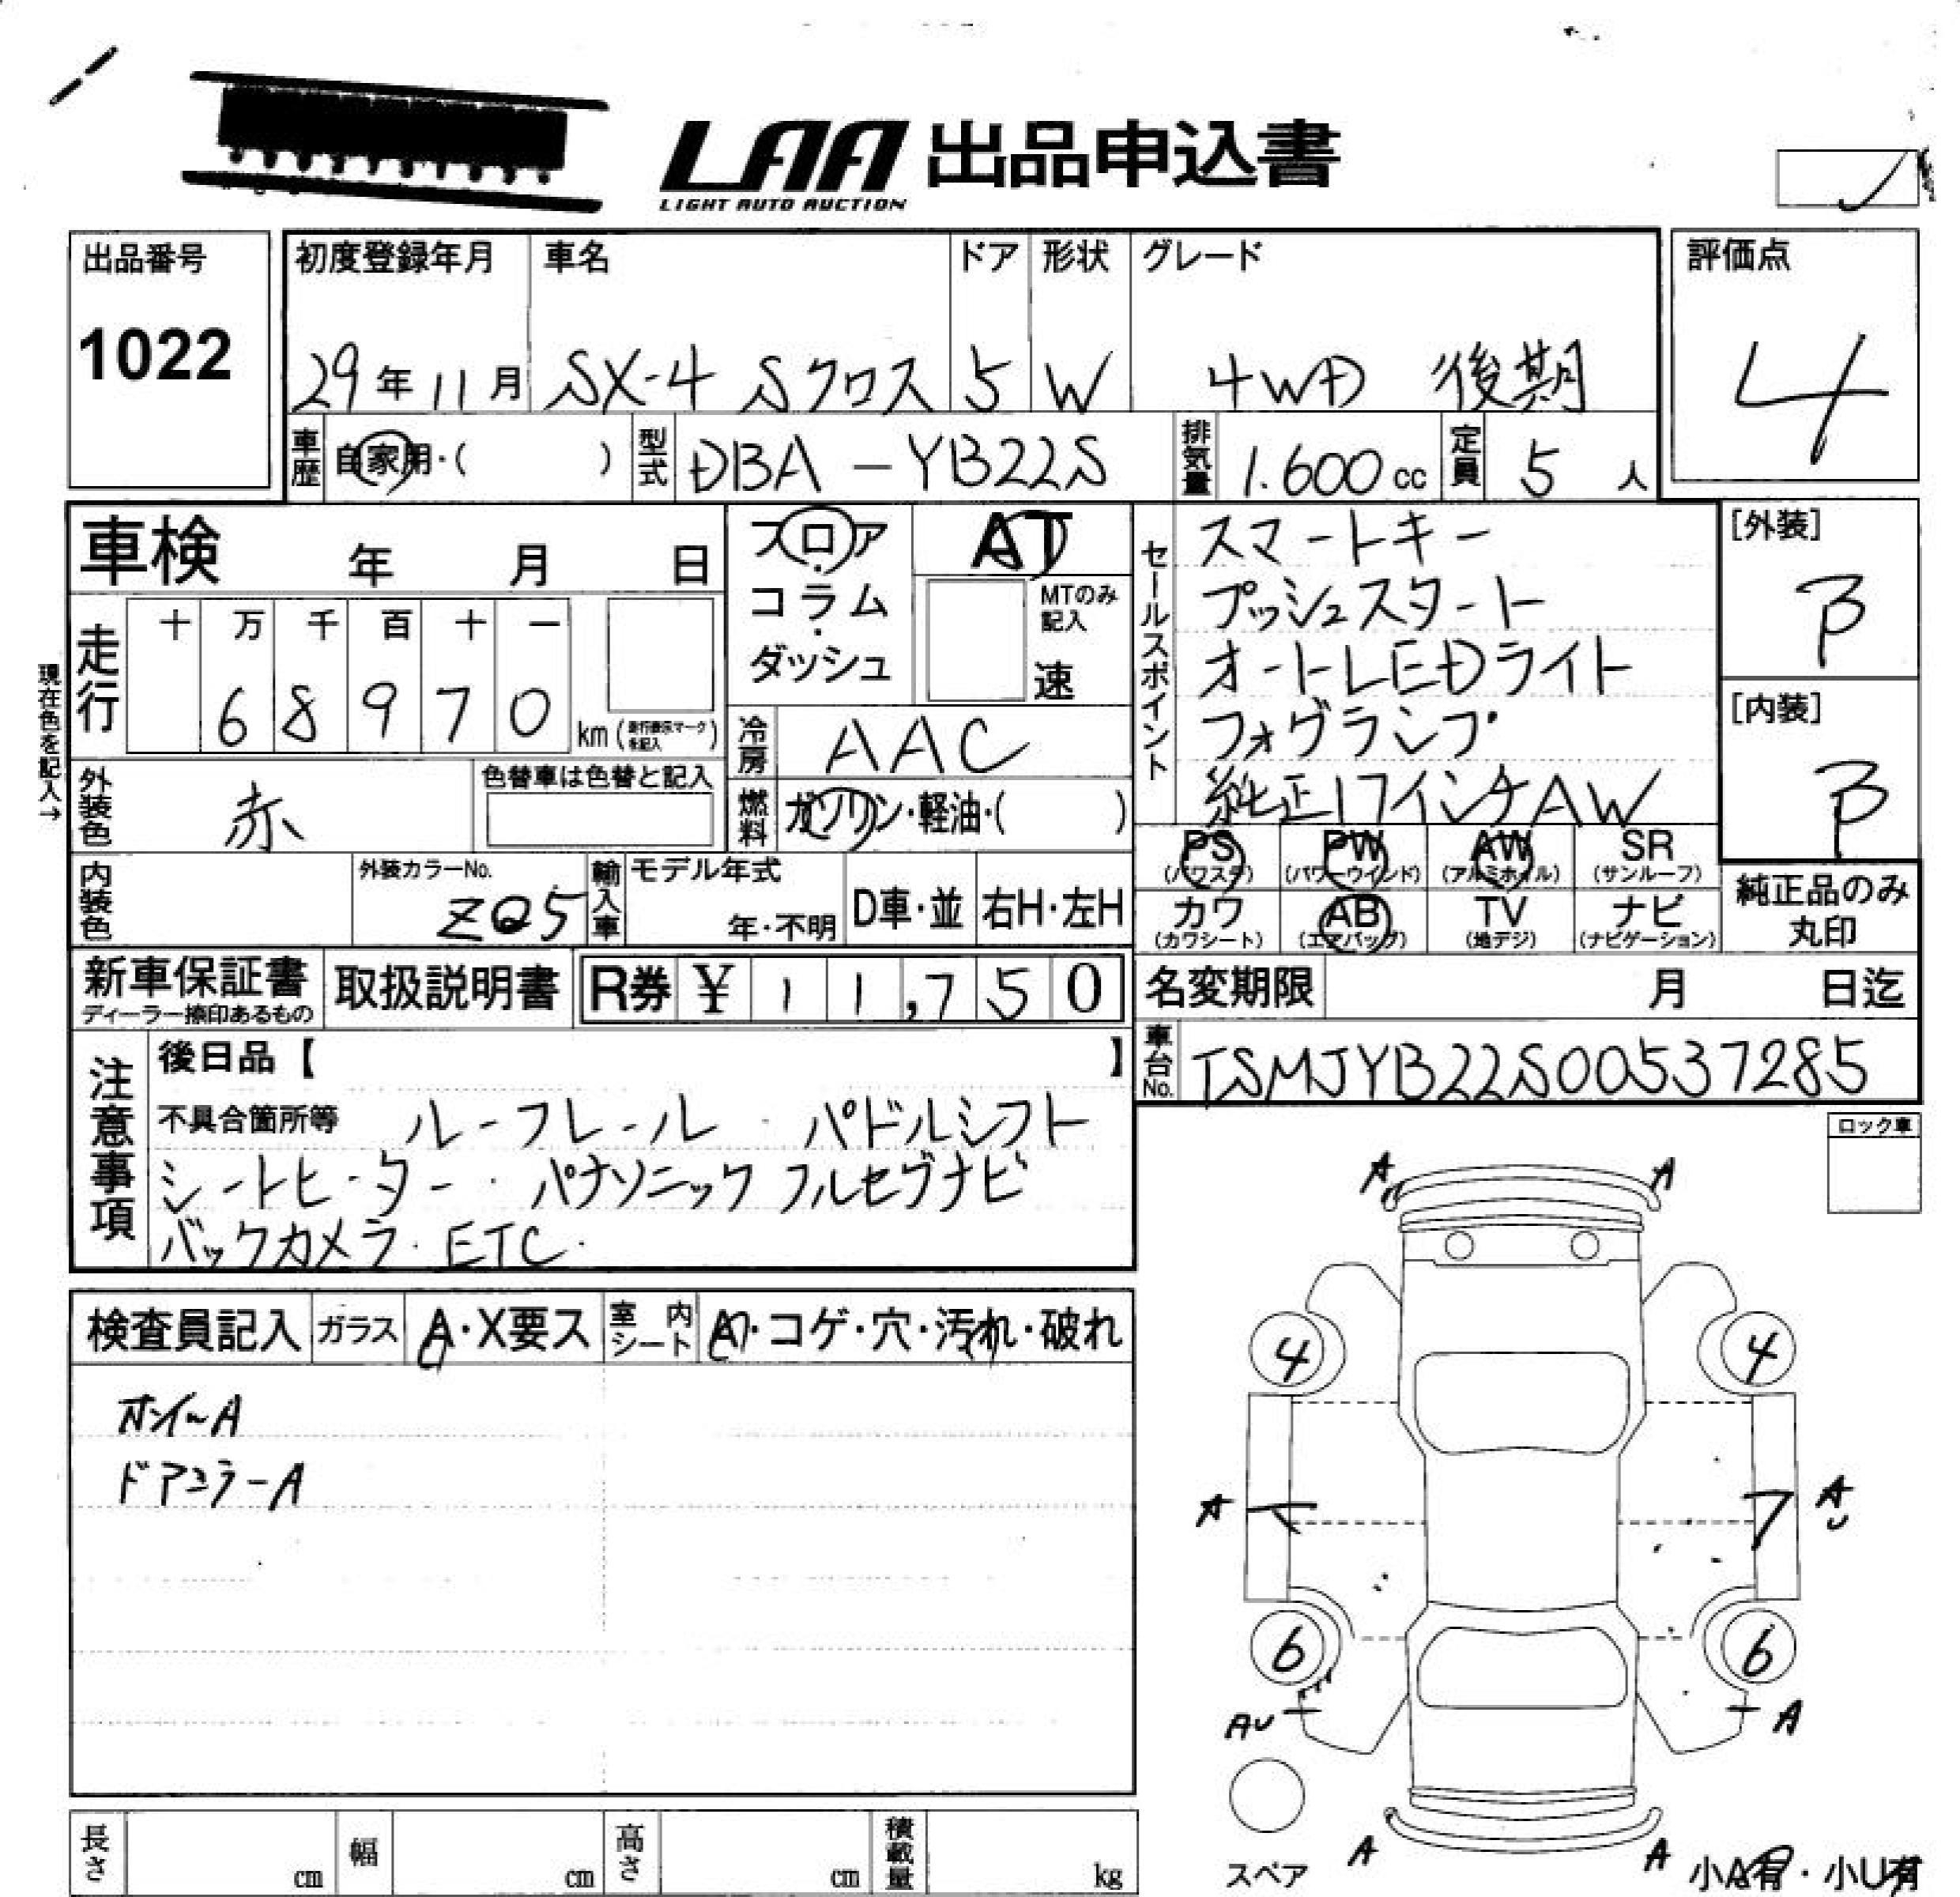 LAA 出品申込書
LIGHT AUTO AUCTION
出品番号
1022
初度登録年月 車名 ドア 形状 グレード
29年11月 SX-4 Sクロス 5 W 4WD 後期
評価点
4
車歴 自家用・( ) 型式 DBA-YB22S 排気量 1.600cc 定員 5人
車検 年 月 日
フロア・コラム・ダッシュ
AT
MTのみ記入
速
セールスポイント
スマートキー
プッシュスタート
オートLEDライト
フォグランプ
純正17インチAW
[外装]
B
[内装]
B
現在色を記入→
走行 十 万 千 百 十 一
6 8 9 7 0 km(走行表示マークを記入)
冷房 AAC
外装色 赤 色替車は色替と記入
燃料 ガソリン・軽油・( )
PS PW AW SR
(パワステ) (パワーウインド) (アルミホイル) (サンルーフ)
カワ AB TV ナビ
(カワシート) (エアバッグ) (地デジ) (ナビゲーション)
純正品のみ
丸印
内装色 外装カラーNo. ZQ5 輸入車 モデル年式 年・不明 D車・並 右H・左H
新車保証書 取扱説明書 R券 ¥ 1 1,7 5 0
ディーラー捺印あるもの
名変期限 月 日迄
車台No. TSMJYB22S00537285
注意事項
後日品【 】
不具合箇所等 ルーフレール・パドルシフト
シートヒーター・パナソニック フルセグナビ
バックカメラ・ETC・
ロック車
検査員記入 ガラス A・X要ス 室内シート コゲ・穴・汚れ・破れ
ホイールA
ドアミラーA
A A
4 4
A A
U
6 6
AU A
スペア A A 小A有・小U有
長さ cm 幅 cm 高さ cm 積載量 kg